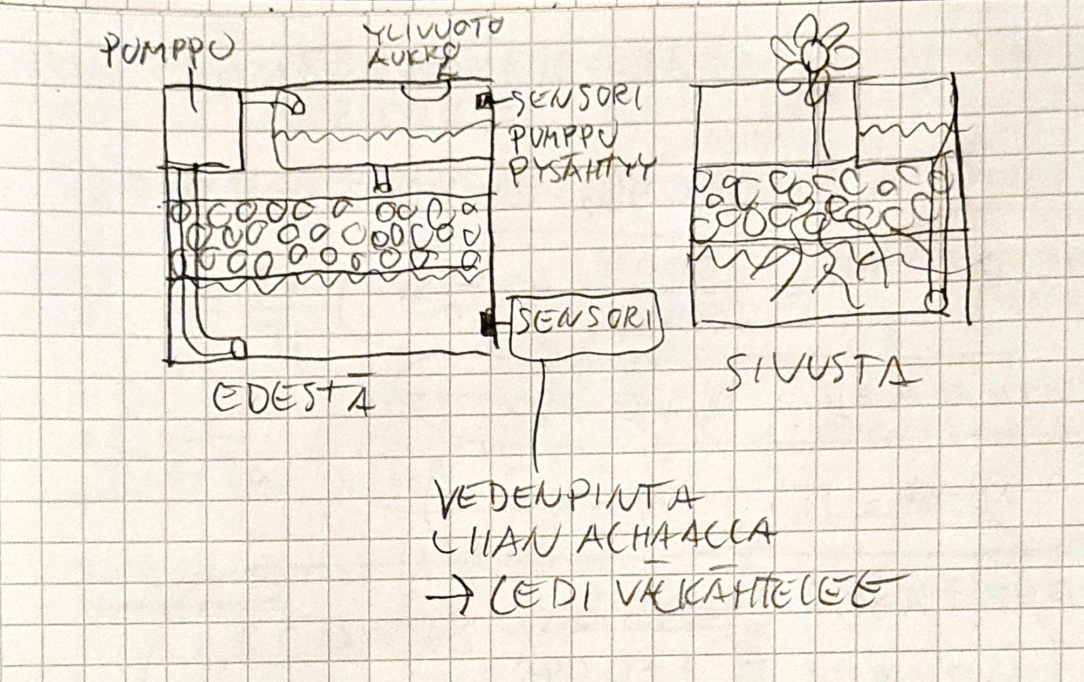 PUMPPU
YLIVUOTO
AUKKO
SENSORI
PUMPPU
PYSÄHTYY
SENSORI
EDESTÄ
SIVUSTA
VEDENPINTA
LIIAN ALHAALLA
→ LEDI VÄLKÄHTELEE